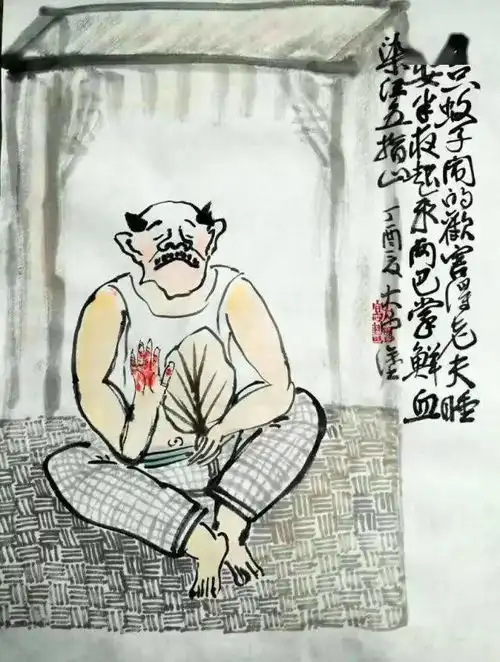 只蚊子闹的歡害得老夫睡
安半夜起来两巴掌鮮血
染红五指山 丁酉夏大